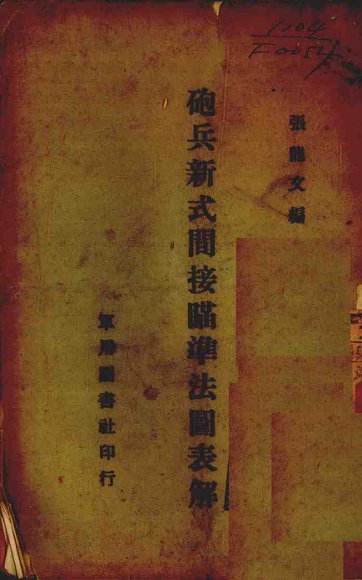 張龍文編
砲兵新式間接瞄準法圖表解
軍用圖書社印行
1104